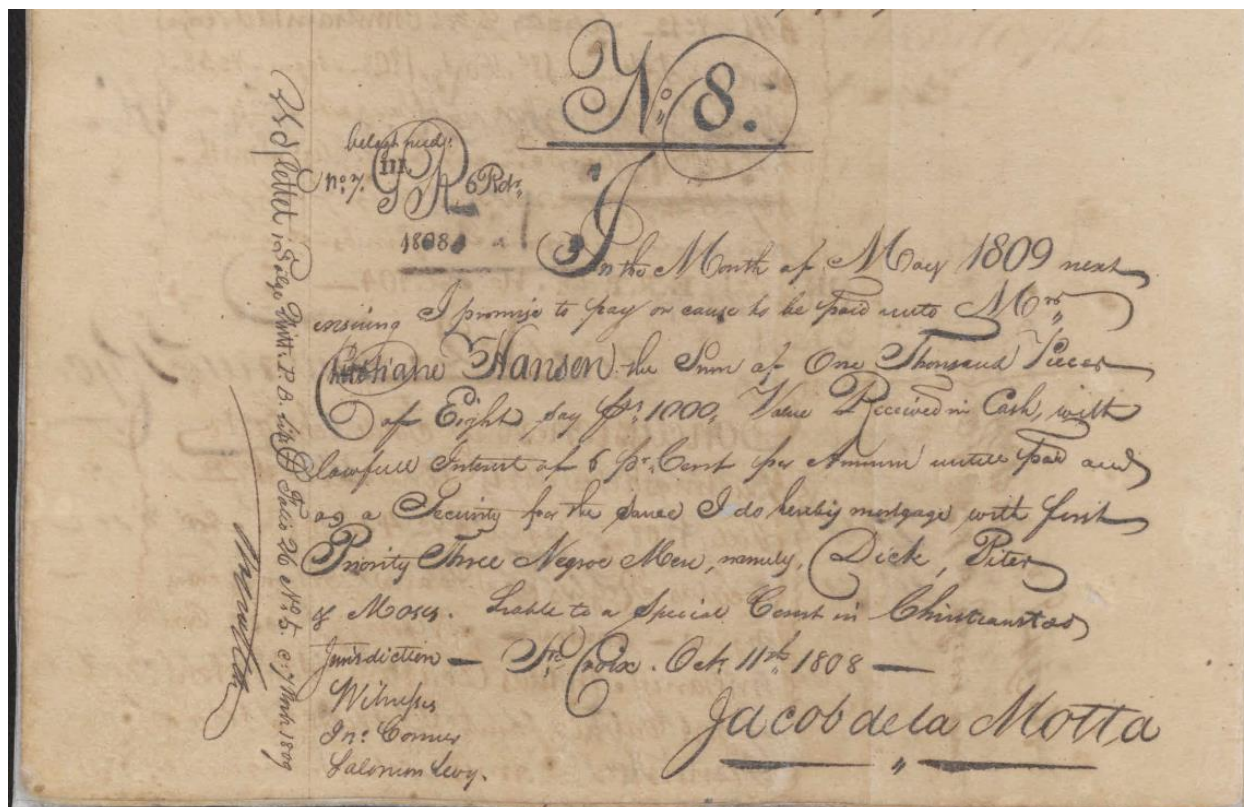 No. 8.
No. 7. 6 Rdr.
1808.
In the Month of May 1809 next
ensuing I promise to pay or cause to be paid unto Mr.
Christiane Hansen the Sum of One Thousand Pieces
of Eight, say ps. 1000, Value Received in Cash, with
lawfull Interest of 6 pr. Cent per Annum untill paid and
as a Security for the same I do hereby mortgage with first
Priority Three Negroe Men, namely, Dick, Piter
& Moses. Liable to a Special Court in Christiansted
Jurisdiction — St. Croix. Octr. 11th 1808 —
Witnesses
Jno. Conner
Salomon Levy.
Jacob de la Motta
Folio 26 No. 5. 1809